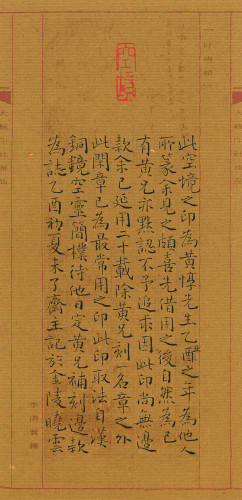 空境
此空境之印為黃惇先生乙醜之年為他人
所篆余見之頗喜先借用之後自然為己
有黃兄亦默認不予追求因此印尚無邊
款余已延用二十載除黃兄刻一名章之外
此閑章已為最常用之印此印取法自漢
銅鏡空靈簡樸待他日定黃兄補刻邊款
為誌乙酉初夏未了齋主記於金陵曉雲